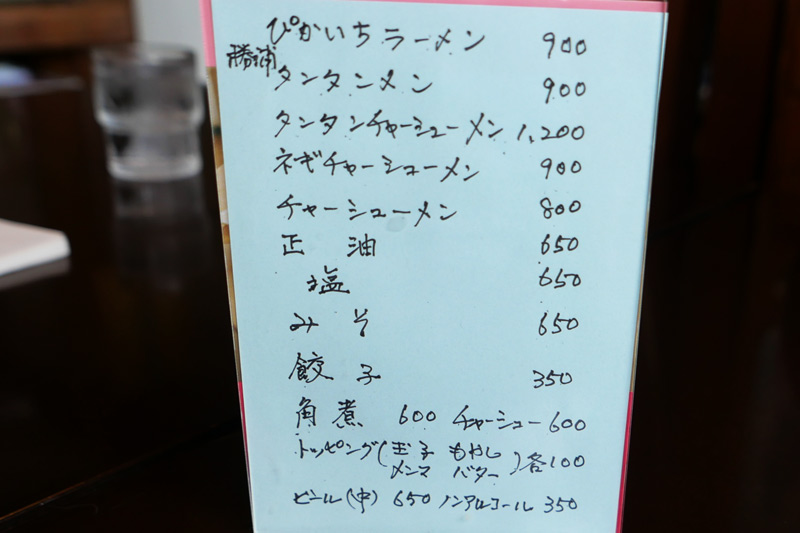 ぴかいちラーメン 900
勝浦タンタンメン 900
タンタンチャーシューメン 1,200
ネギチャーシューメン 900
チャーシューメン 800
正油 650
塩 650
みそ 650
餃子 350
角煮 600 チャーシュー 600
トッピング(玉子 もやし
メンマ バター)各100
ビール(中) 650 ノンアルコール 350